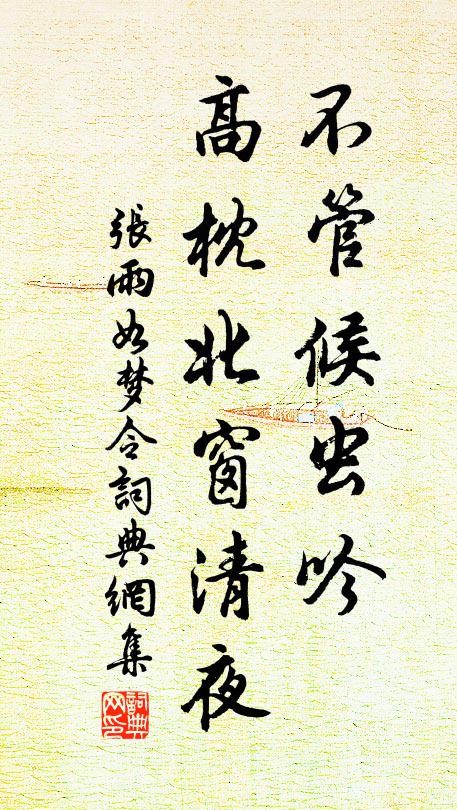 不管候虫吟
高枕北窗清夜
張雨如梦令詞典網集
詞典网印